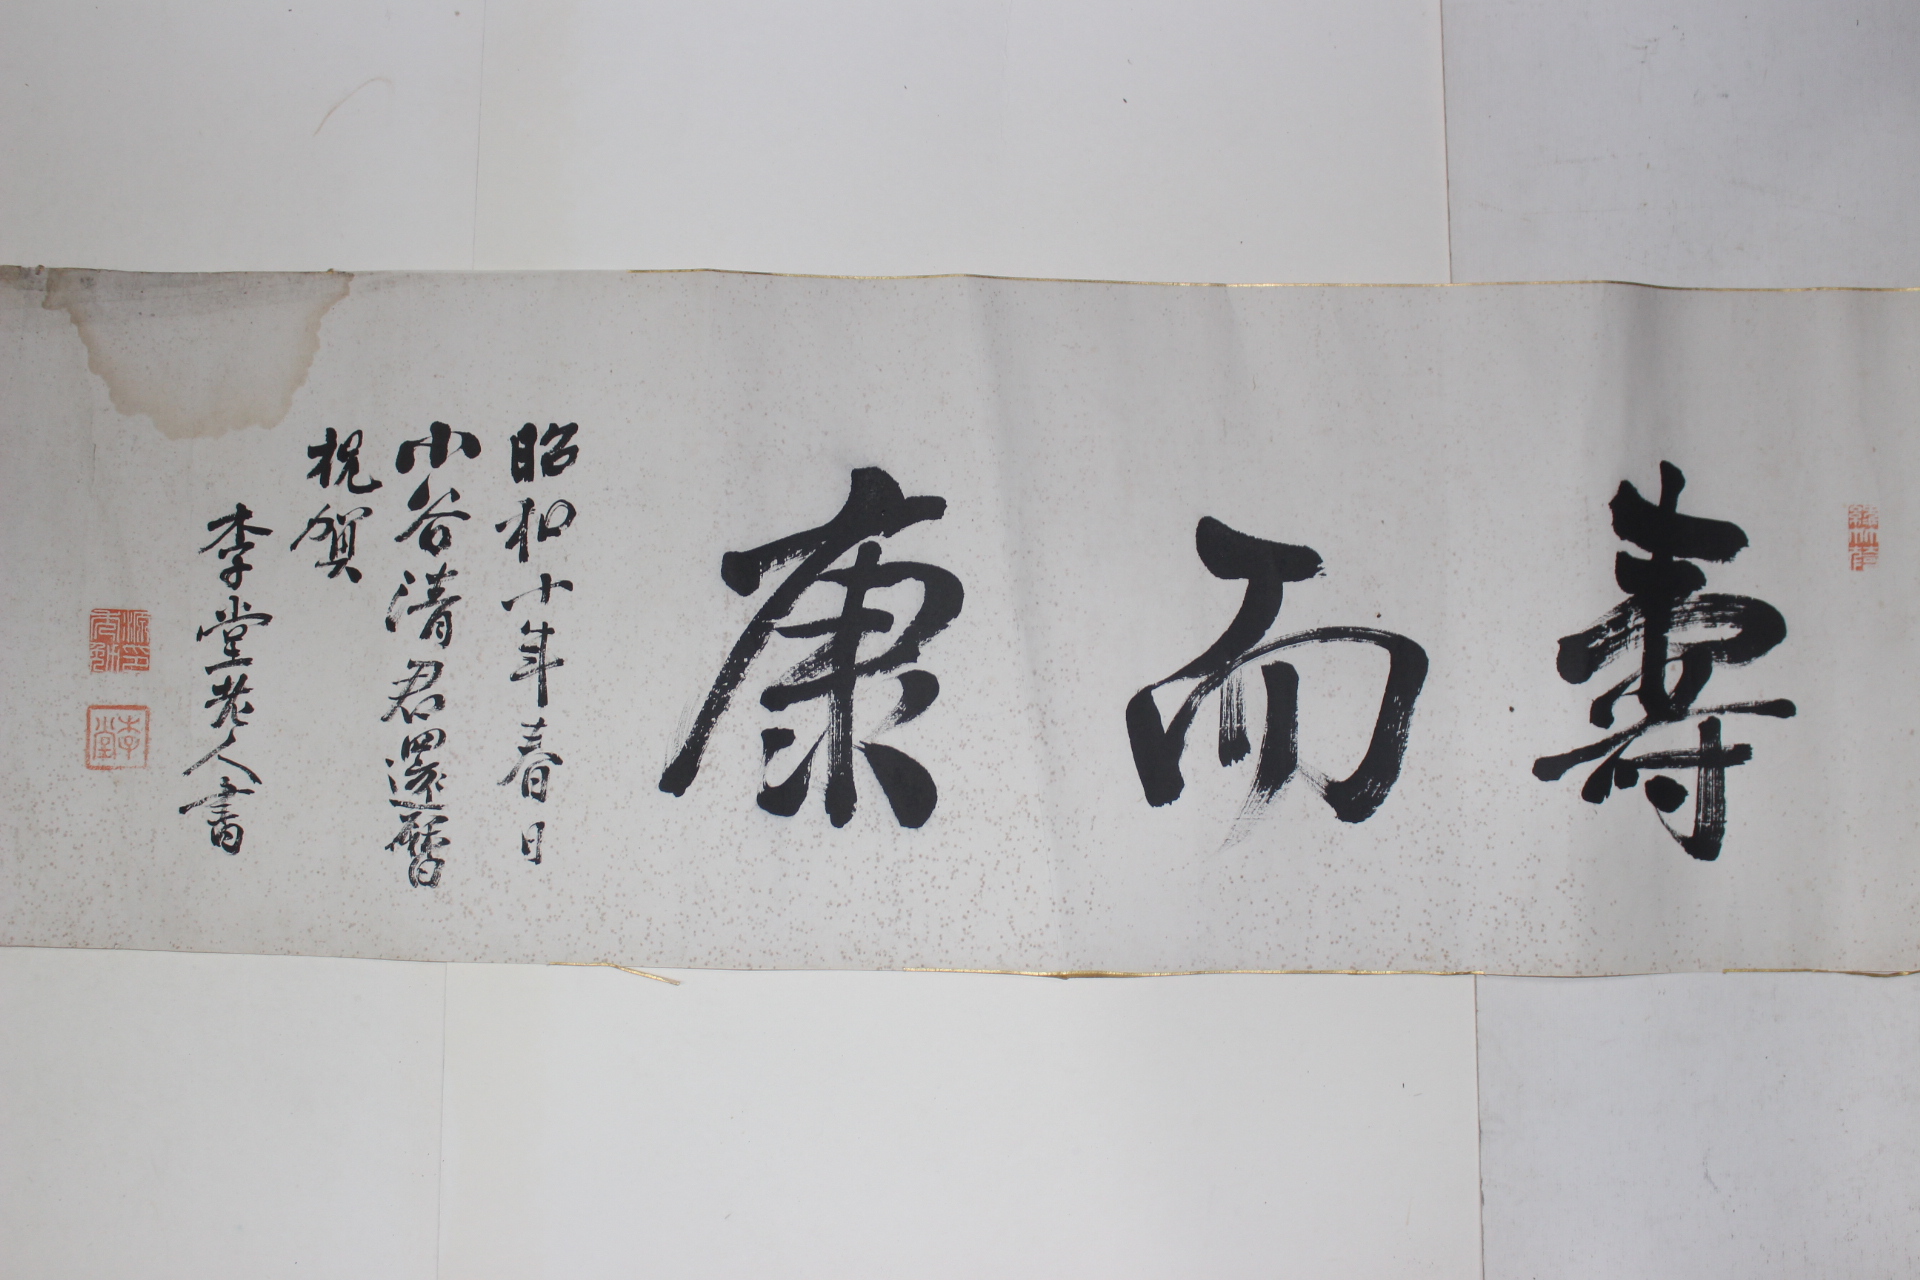 壽而康
昭和十年春日
小谷清君還暦
祝賀
李堂老人書
李堂